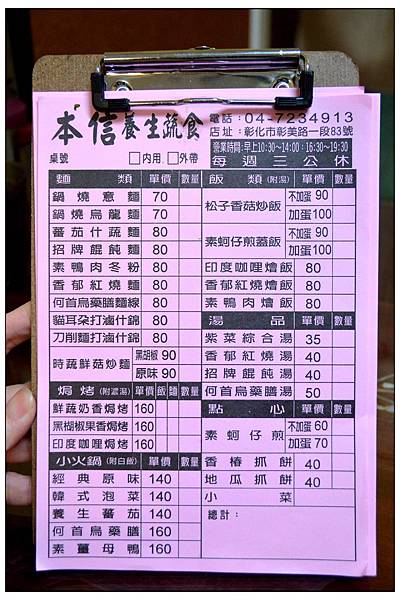 本信養生蔬食
電話：04-7234913
店址：彰化市彰美路一段83號
營業時間：早上10:30~14:00；16:30~19:30
每週三公休
桌號 □內用 □外帶
麵類 單價 數量
鍋燒意麵 70
鍋燒烏龍麵 70
蕃茄什蔬麵 80
招牌餛飩麵 80
素鴨肉冬粉 80
香郁紅燒麵 80
何首烏藥膳麵線 80
貓耳朵打滷什錦 80
刀削麵打滷什錦 80
時蔬鮮菇炒麵 黑胡椒 90
原味 90
焗烤(附濃湯) 單價 飯 麵 數量
鮮蔬奶香焗烤 160
黑椒果香焗烤 160
印度咖哩焗烤 160
小火鍋(附白飯) 單價 數量
經典原味 140
韓式泡菜 140
養生蕃茄 140
何首烏藥膳 160
素薑母鴨 160
飯類(附湯) 單價 數量
松子香菇炒飯 不加蛋 90
加蛋100
素蚵仔煎蓋飯 不加蛋 90
加蛋100
印度咖哩燴飯 80
香郁紅燒燴飯 80
素鴨肉燴飯 80
湯品 單價 數量
紫菜綜合湯 35
香郁紅燒湯 40
招牌餛飩湯 40
何首烏藥膳湯 50
點心 單價 數量
素蚵仔煎 不加蛋 60
加蛋 70
香椿抓餅 40
地瓜抓餅 40
小菜
總計：